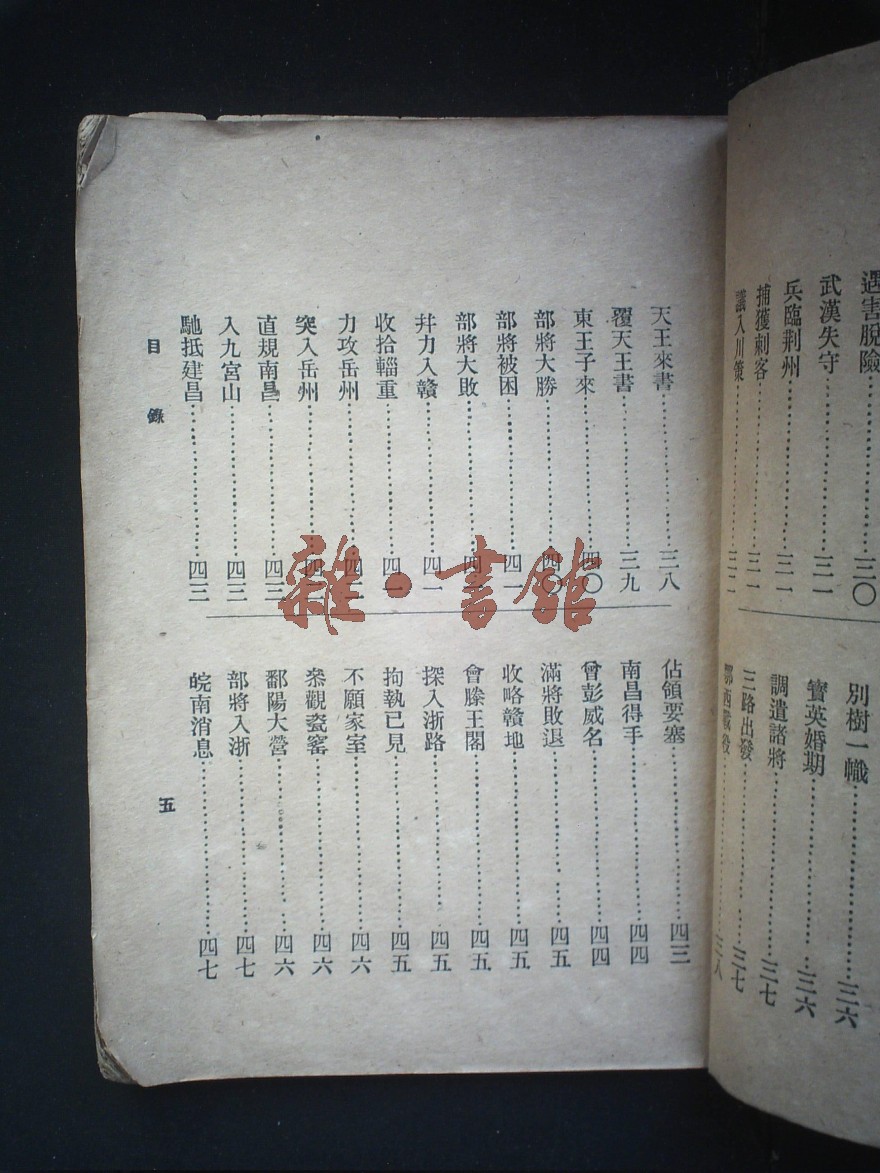 遇害脫險……三〇
武漢失守……三一
兵臨荆州……三一
捕獲刺客……三一
議入川策……三二
別樹一幟……三六
寶英婚期……三六
調遣諸將……三七
三路出發……三七
鄂西戰役……三八
天王來書……三八
覆天王書……三九
東王子來……四〇
部將大勝……四〇
部將被困……四一
部將大敗……四一
幷力入贛……四一
收拾輜重……四一
力攻岳州……四二
突入岳州……四二
直規南昌……四三
入九宮山……四三
馳抵建昌……四三
佔領要塞……四三
南昌得手……四四
曾彭威名……四四
滿將敗退……四五
收略贛地……四五
會滕王閣……四五
探入浙路……四五
拘執已見……四五
不願家室……四六
叅觀瓷窰……四六
鄱陽大營……四六
部將入浙……四七
皖南消息……四七
目錄
五
雜·書館